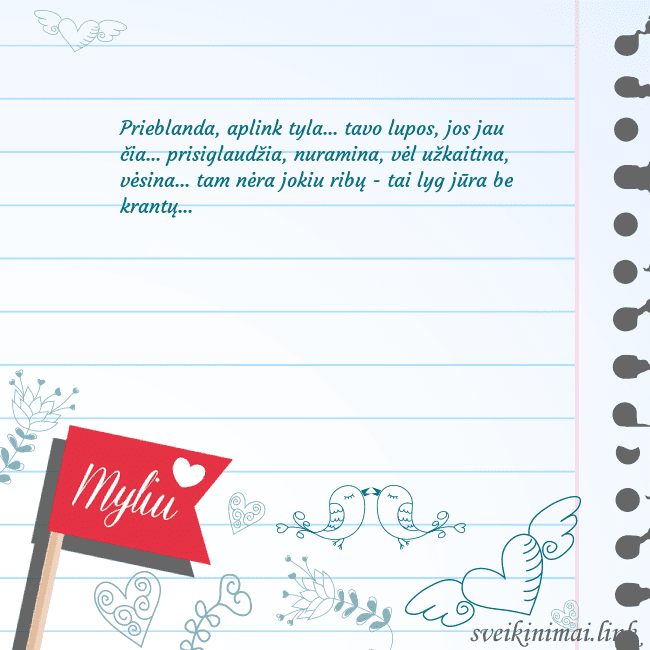 Prieblanda, aplink tyla... tavo lupos, jos jau
čia... prisiglaudžia, nuramina, vėl užkaitina,
vėsina... tam nėra jokiu ribų - tai lyg jūra be
krantų...
Myliu
sveikinimai.link